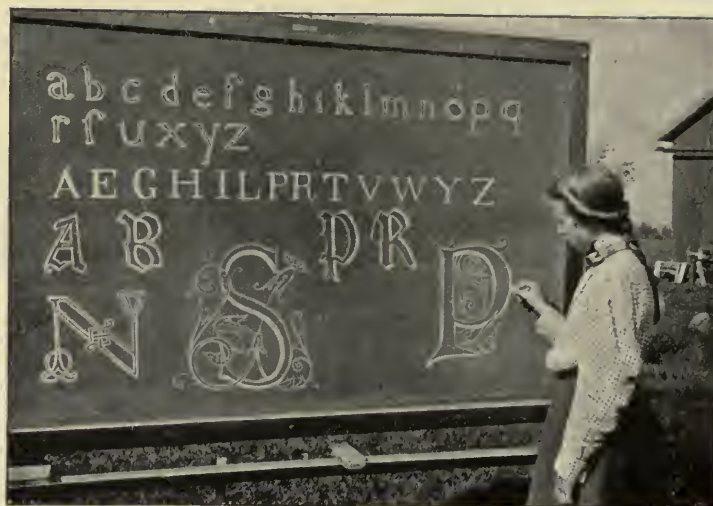 a b c d e f g h i k l m n o p q
r ſ u x y z
A E G H I L P R T V W Y Z
A B P R
N S P